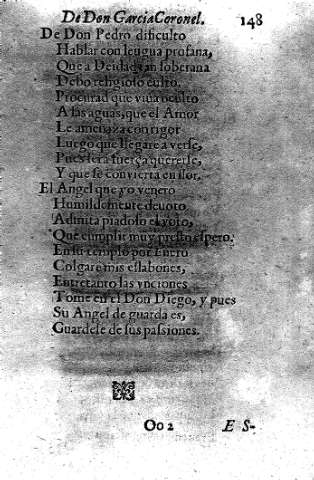 De Don Garcia Coronel. 148
De Don Pedro dificulto
Hablar con lengua profana,
Que a Deidad tan soberana
Debo religioso culto.
Procurad que viua oculto
A las aguas, que el Amor
Le amenaza con rigor
Luego que llegare a verse,
Pues sera fuerça quererse,
Y que se convierta en flor.
El Angel que yo venero
Humildemente deuoto,
Admita piadoso el voto,
Que cumplir muy presto espero,
En su templo por Enero
Colgare mis eslabones,
Entretanto las vnciones
Tome en el Don Diego, y pues
Su Angel de guarda es,
Guardese de sus passiones.
Oo 2 E S-